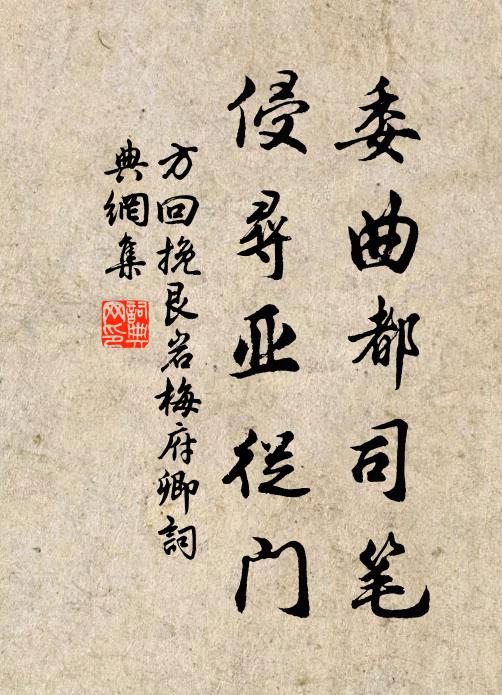 委曲都司笔
侵尋亚從门
方回挽艮岩梅府卿詞
典網集
詞典
网印